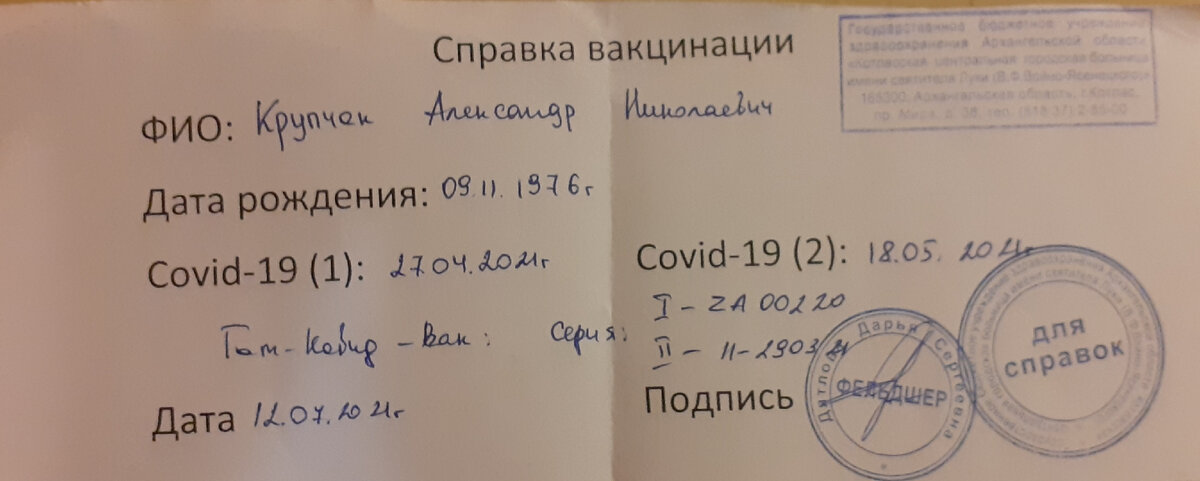 Справка вакцинации
Государственное бюджетное учреждение
здравоохранения Архангельской области
«Котласская центральная городская больница
имени святителя Луки (В.Ф.Войно-Ясенецкого)»
165300, Архангельская область, г.Котлас,
пр. Мира, д. 36, тел. (818-37) 2-
ФИО: Крупчак Александр Николаевич
Дата рождения: 09.11.1976г
Covid-19 (1): 27.04.2021г
Covid-19 (2): 18.05.2021г
I - ZA 00220
Гам-Ковид-Вак: Серия:
II - II-290321
Дата 12.07.2021г
Подпись
Дарья Сергеевна
ФЕЛЬДШЕР
ДЛЯ
справок